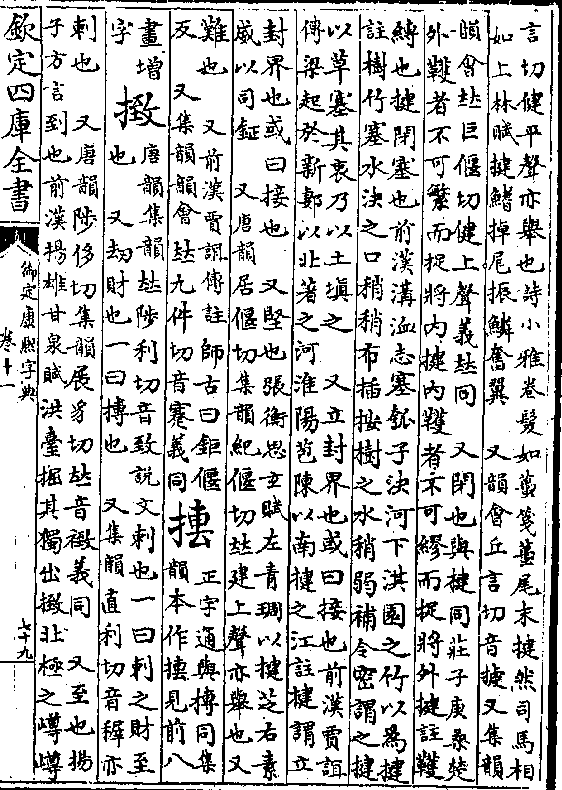 言切健平聲亦舉也詩小雅卷髮如蠆箋蠆尾末揵然司馬相
如上林賦揵鰭掉尾振鱗奮翼　又韻會丘言切音攓又集韻
韻會𠀤巨偃切健上聲義𠀤同　又閉也與楗同莊子庚桑楚
外韄者不可繁而捉將內揵內韄者不可繆而捉將外揵註韄
縛也揵閉塞也前漢溝洫志塞瓠子決河下淇園之竹以爲揵
註樹竹塞水決之口稍稍布插按樹之水稍弱補令密謂之揵
以草塞其裏乃以土塡之　又立封界也或曰接也前漢賈誼
傳梁起於新郪以北著之河淮陽苞陳以南揵之江註揵謂立
封界也或曰接也　又堅也張衡思玄賦左青琱以揵芝右素
威以司鉦　又唐韻居偃切集韻紀偃切𠀤建上聲亦舉也又
難也　又前漢賈誼傳註師古曰鉅偃
反　又集韻韻會𠀤九件切音蹇義同
𢮎　正字通與摶同集
韻本作𢮎見前八
畫增
字
撴也　唐韻集韻𠀤陟利切音致說文刺也一曰刺之財至
也　又劫財也一曰搏也　又集韻直利切音稺亦
刺也　又唐韻陟侈切集韻展豸切𠀤音徵義同　又至也揚
子方言到也前漢揚雄甘泉賦洪臺掘其獨出㨖北極之嶟嶟
欽定四庫全書
御定康熙字典
卷十一
七十九